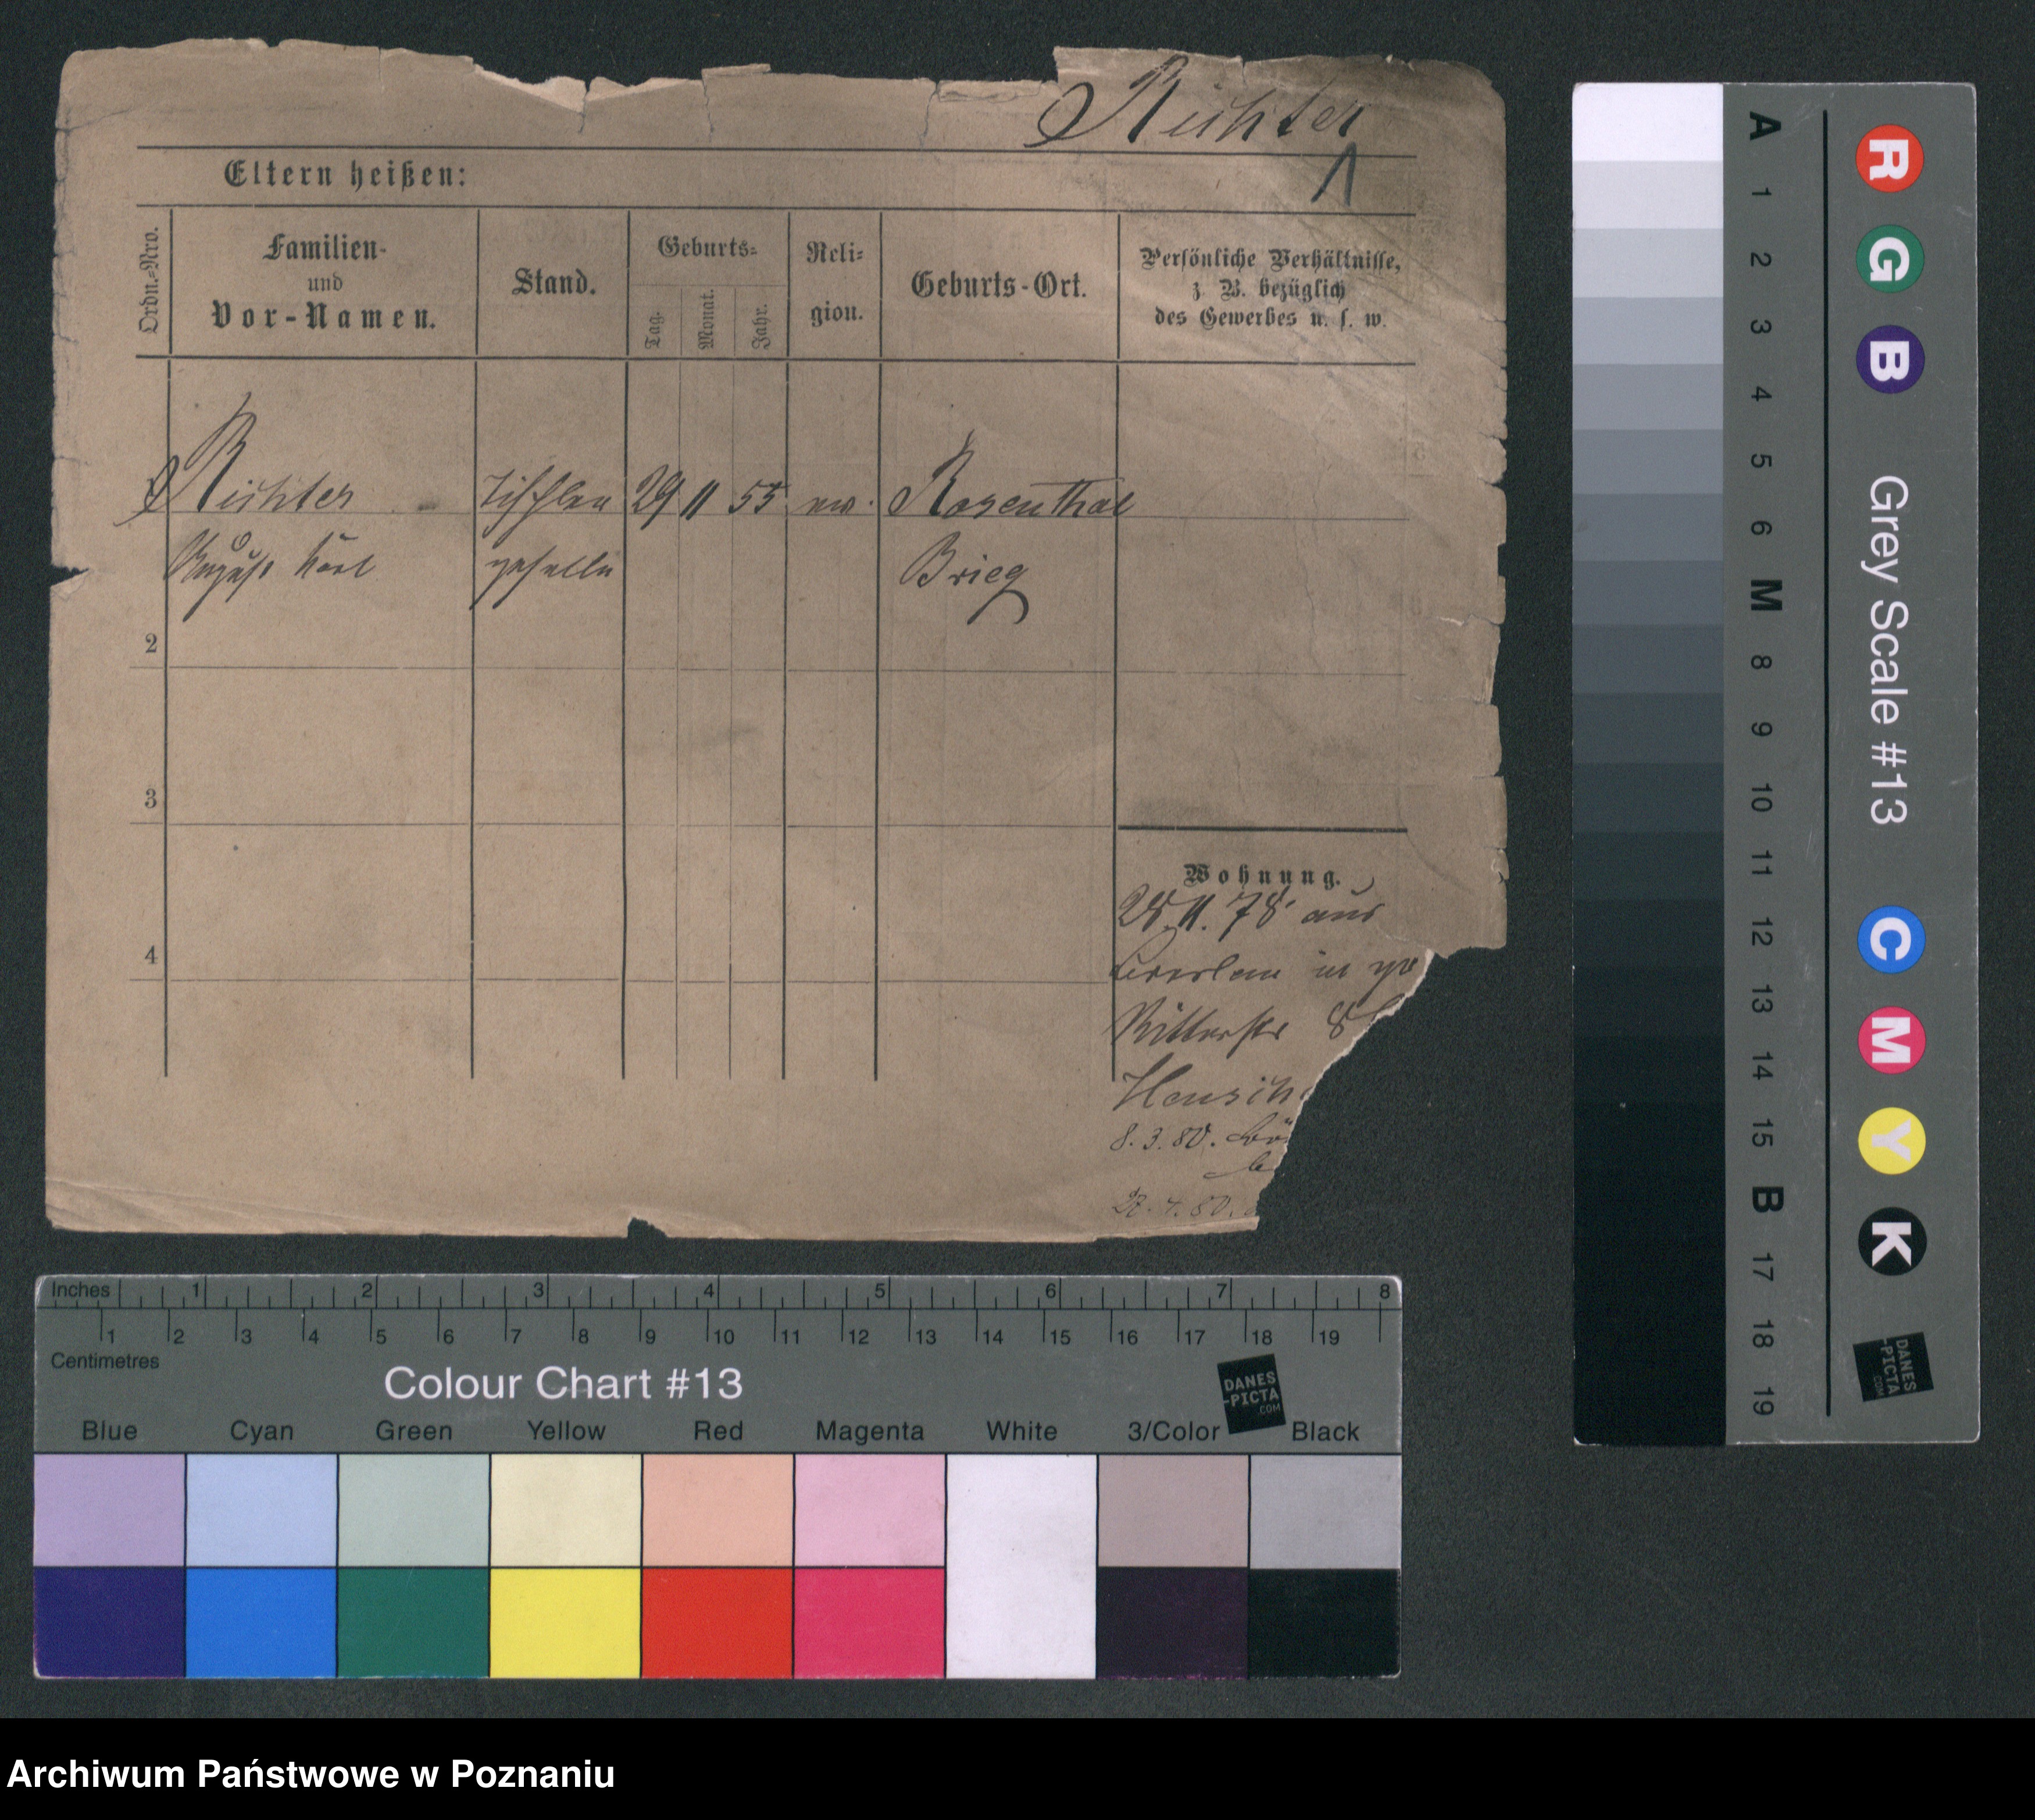 Richter
1
Eltern heißen:
Ordn.=Nro.
Familien-
und
Vor-Namen.
Stand.
Geburts=
Tag.
Monat.
Jahr.
Reli=
gion.
Geburts-Ort.
Persönliche Verhältnisse,
z. B. bezüglich
des Gewerbes u. s. w.
Richter Tischler 29 11 55 ev. Rosenthal
August Karl geselle Brieg
2
3
4
Wohnung.
28.11.78 aus
Breslau in
Ritterstr 8
Hensch
8.3.80.
80.
Inches 1 2 3 4 5 6 7 8
1 2 3 4 5 6 7 8 9 10 11 12 13 14 15 16 17 18 19
Centimetres
Colour Chart #13
DANES
-PICTA
.COM
Blue Cyan Green Yellow Red Magenta White 3/Color Black
A 1 2 3 4 5 6 M 8 9 10 11 12 13 14 15 B 17 18 19
R G B Grey Scale #13 C M Y K
DANES
-PICTA
.COM
Archiwum Państwowe w Poznaniu